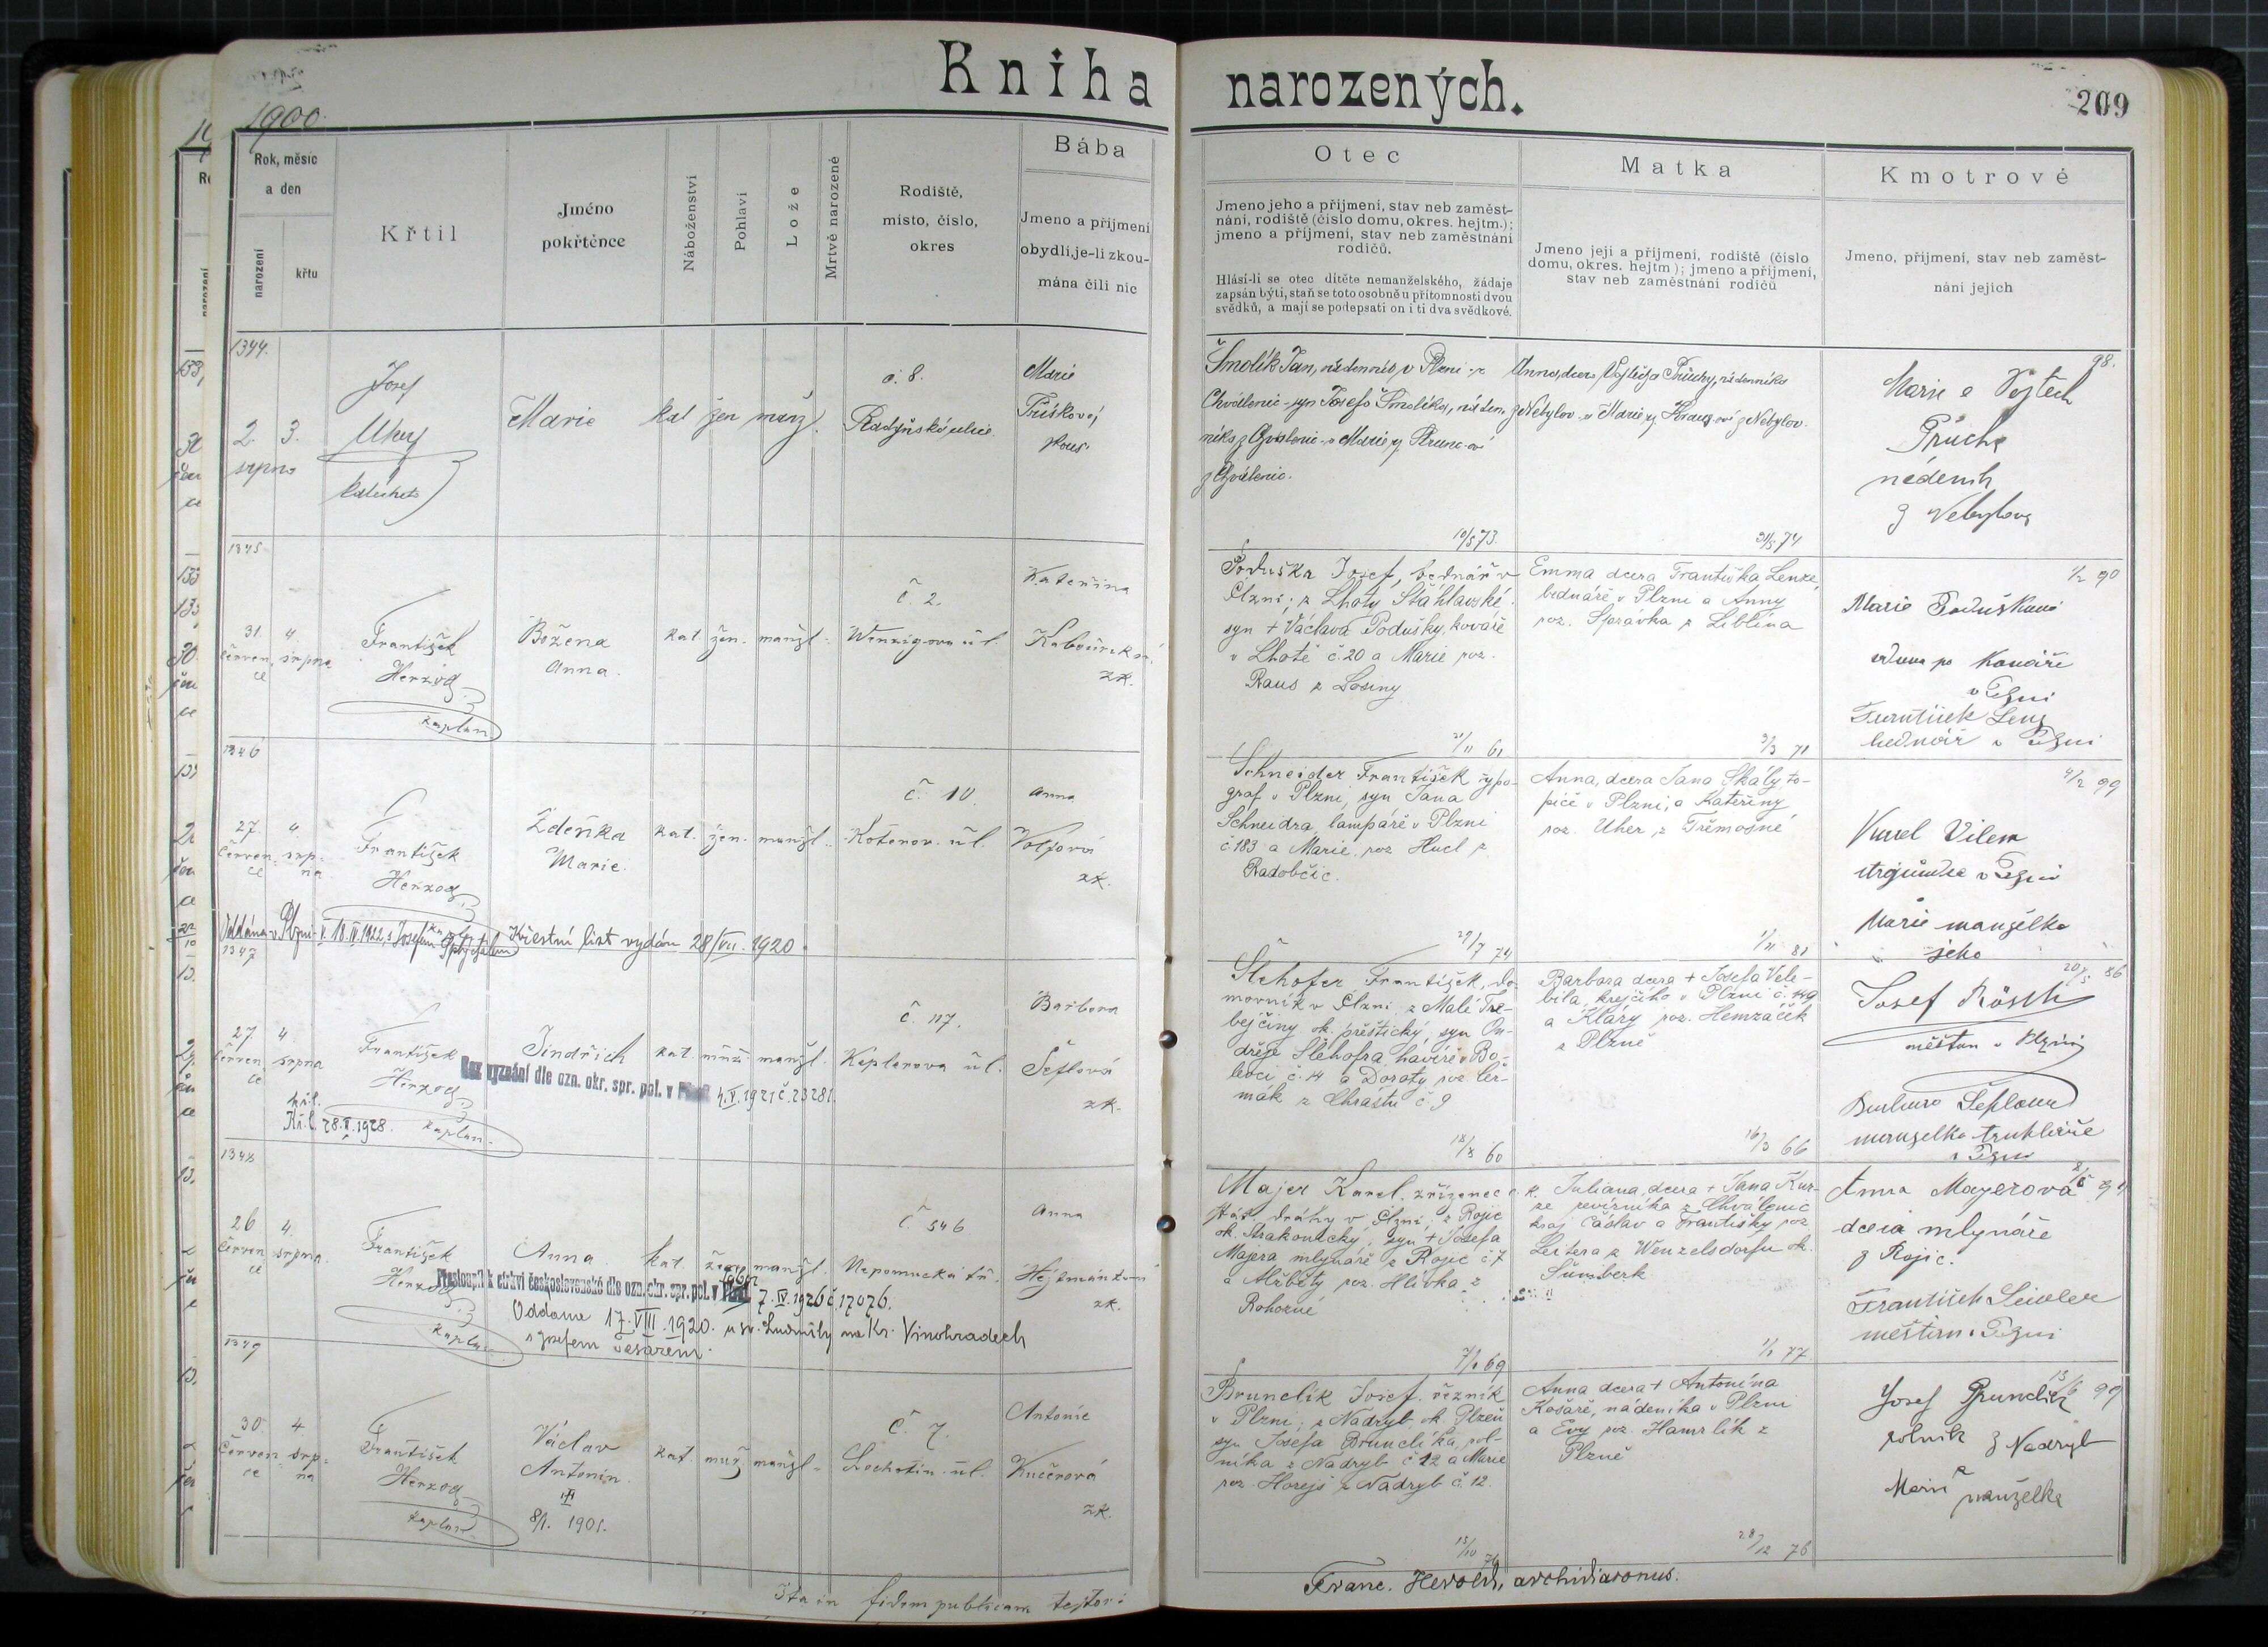 Kniha narozených.
209
1900
Rok, měsíc a den
narození
křtu
Křtil
Jméno pokřtěnce
Náboženství
Pohlaví
Lože
Mrtvě narozené
Rodiště, místo, číslo, okres
Bába
Jmeno a příjmení obydlí, je-li zkoumána čili nic
Otec
Jmeno jeho a příjmení, stav neb zaměst-
nání, rodiště (číslo domu, okres. hejtm.);
jmeno a příjmení, stav neb zaměstnání
rodičů.
Hlásí-li se otec dítěte nemanželského, žádaje
zapsán býti, staň se toto osobně u přítomnosti dvou
svědků, a mají se podepsati on i ti dva svědkové.
Matka
Jmeno její a příjmení, rodiště (číslo
domu, okres. hejtm); jmeno a příjmení,
stav neb zaměstnání rodičů
Kmotrové
Jmeno, příjmení, stav neb zaměst-
nání jejich
1344.
2. 3.
srpna
Josef
Uhry
katecheta
Marie
kat žen manž.
č. 8.
Radyňská ulice
Marie
zkouš.
Šmolík Jan, nádenník v Plzni z
Chválenic syn Josefa Šmolíka, náden-
níka z Chválenic a Marie
z Chválenic.
Anna, dcera Vojtěcha Průchy, nádenníka
z Nebylov a Marie z Nebylov.
98.
Marie a Vojtěch
Průcha
nádeník
z Nebylova
10/5 73.
31/5 74
1345
31. 4.
červen- srpna
ce
František
Herzog
kaplan
Božena
Anna.
kat žen. manžl.
č 2.
Wenzigova ul.
Kateřina
zk.
Poduška Josef, bednář v
Plzni; z Lhoty Šťáhlavské
syn + Václava Podušky, kováře
v Lhotě č. 20 a Marie roz.
Raus z Losiny
Emma dcera Františka Lenze,
bednáře v Plzni a Anny
roz. Správka z Liblína
1/2 90
Marie Podušková
vdova po kováři
v Plzni
František Lenz
bednář v Plzni
21/11 61
3/3 71
1346
27. 4.
červen- srp-
ce na
František
Herzog
kaplan
Zdeňka
Marie.
kat. žen. manžl.
č 10.
Koterov. ul.
Anna
Volfová
zk.
Oddána v Plzni 18.IV.1922 s Josefem
Křestní list vydán 28/VII. 1920.
Schneider František typo-
graf v Plzni, syn Jana
Schneidra, lampáře v Plzni
č. 183 a Marie, roz Hucl z
Radobčic.
Anna, dcera Jana Skály to-
piče v Plzni, a Kateřiny
roz. Uher, z Třemošné
4/2 99
Karel Vilem
strojvůdce v Plzni
Marie manželka
jeho
29/7 74
1/11 81
1347
27. 4.
červen- srpna
ce
František
Herzog
kaplan
Jindřich
kat. muž. manžl.
č. 117.
Keplerova ul.
Barbora
Šeflová
zk.
Bez vyznání dle ozn. okr. spr. pol. v Plzni 4.V.1921 č. 23281.
Kř. l. 28.V.1928.
Šlehofer František, do-
movník v Plzni z Malé Tře-
bejčiny ok. přeštický syn On-
dřeje Šlehofra havíře v Bo-
levci č. 14 a Doroty, roz. Čer-
mák z Chrástu č. 9
Barbora dcera + Josefa Vele-
bila, krejčího v Plzni č. 149
a Kláry roz. Hemzáček
z Plzně
20/5 86
Josef Rösch
měšťan v Plzni
Barbora Šeflová
manželka truhláře
v Plzni
18/8 60
16/3 66
1348
26 4.
červen- srpna
ce
František
Herzog
kaplan
Anna
kat. žen. manžl.
č 546
Nepomucká tř.
Anna
zk.
Přestoupil k církvi československé dle ozn. okr. spr. pol. v Plzni 7.IV.1926 č 17076.
Oddána 17.VIII.1920. u sv. Ludmily na Kr. Vinohradech
s Josefem Česárem.
Majer Karel, zřízenec c. k.
stát. dráhy v Plzni; z Rojic
ok. Strakonický; syn + Josefa
Majera mlynáře z Rojic č 7
a Alžběty roz. Hlivka z
Rohozné
Juliana, dcera + Jana Kur-
ze revírníka z Chválenic
kraj Čáslav a Františky roz
Leitera z Wenzelsdorfu ok.
Šumberk
Anna Mayerová
dcera mlynáře
z Rojic.
František Seidler
měšťan v Plzni
7/1 69
1/1 77
1349
30. 4.
červen- srp-
ce na
František
Herzog
kaplan
Václav
Antonín.
8/1. 1901.
kat. muž. manžl.
č. 7.
Lochotín. ul.
Antonie
Kučerová
zk.
Brunclík Josef, řezník
v Plzni; z Nadryb ok. Plzeň
syn Josefa Brunclíka, rol-
níka z Nadryb č 12 a Marie
roz. Horejš z Nadryb č. 12.
Anna dcera + Antonína
Košaře, nádeníka v Plzni
a Evy roz. Hamrlík z
Plzně
15/6 99
Josef Brunclík
rolník z Nadryb
a
Marie manželka
15/10 74
28/12 76
Ita in fidem publicam testor:
Franc. Herold, archidiaconus.